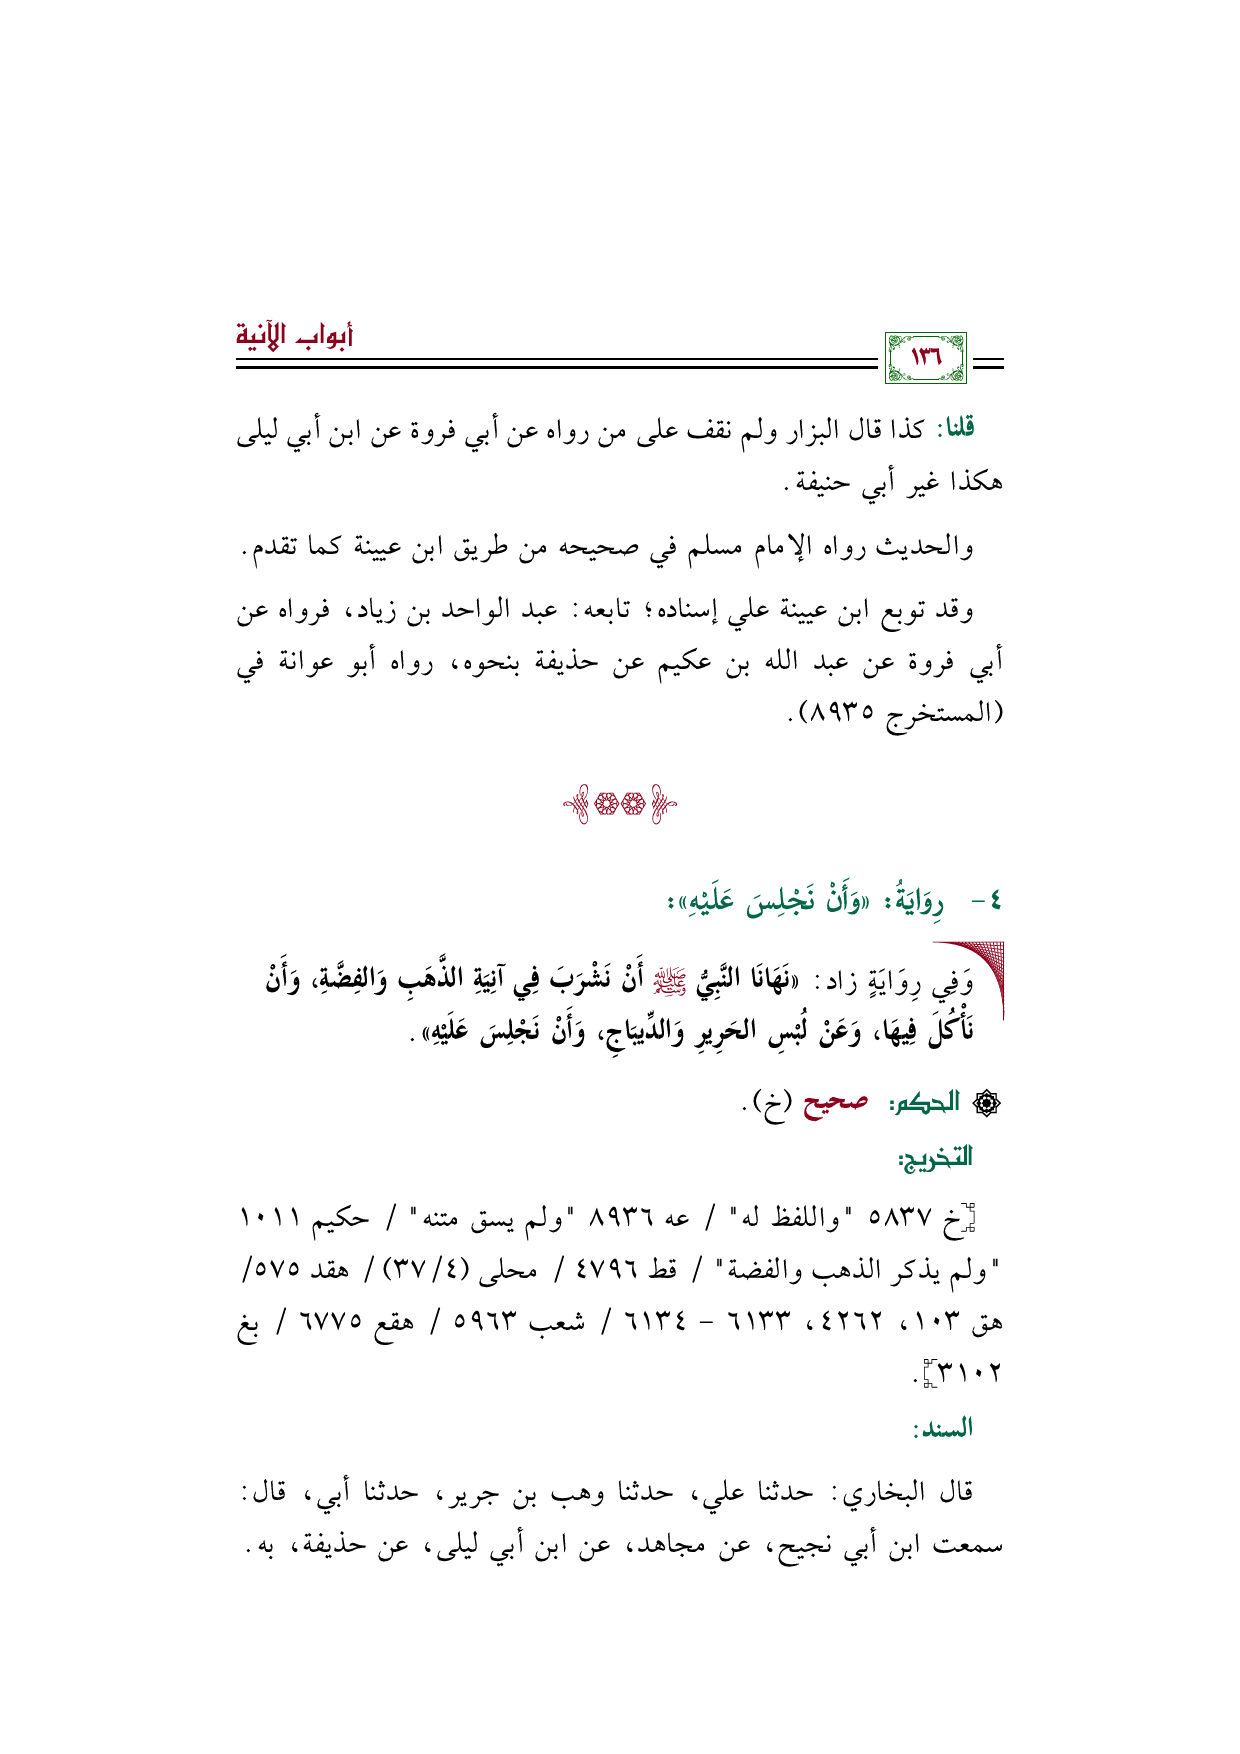 أبواب الآنية
١٣٦
قلنا: كذا قال البزار ولم نقف على من رواه عن أبي فروة عن ابن أبي ليلى
هكذا غير أبي حنيفة.
والحديث رواه الإمام مسلم في صحيحه من طريق ابن عيينة كما تقدم.
وقد توبع ابن عيينة علي إسناده؛ تابعه: عبد الواحد بن زياد، فرواه عن
أبي فروة عن عبد الله بن عكيم عن حذيفة بنحوه، رواه أبو عوانة في
(المستخرج ٨٩٣٥).
٤- رِوَايَةُ: «وَأَنْ نَجْلِسَ عَلَيْهِ»:
وَفِي رِوَايَةٍ زاد: «نَهَانَا النَّبِيُّ ﷺ أَنْ نَشْرَبَ فِي آنِيَةِ الذَّهَبِ وَالفِضَّةِ، وَأَنْ
نَأْكُلَ فِيهَا، وَعَنْ لُبْسِ الحَرِيرِ وَالدِّيبَاجِ، وَأَنْ نَجْلِسَ عَلَيْهِ».
الحكم: صحيح (خ).
التخريج:
[خ ٥٨٣٧ "واللفظ له" / عه ٨٩٣٦ "ولم يسق متنه" / حكيم ١٠١١
"ولم يذكر الذهب والفضة" / قط ٤٧٩٦ / محلى (٣٧/٤) / هقد ٥٧٥/
هق ١٠٣، ٤٢٦٢، ٦١٣٣ – ٦١٣٤ / شعب ٥٩٦٣ / هقع ٦٧٧٥ / بغ
٣١٠٢].
السند:
قال البخاري: حدثنا علي، حدثنا وهب بن جرير، حدثنا أبي، قال:
سمعت ابن أبي نجيح، عن مجاهد، عن ابن أبي ليلى، عن حذيفة، به.